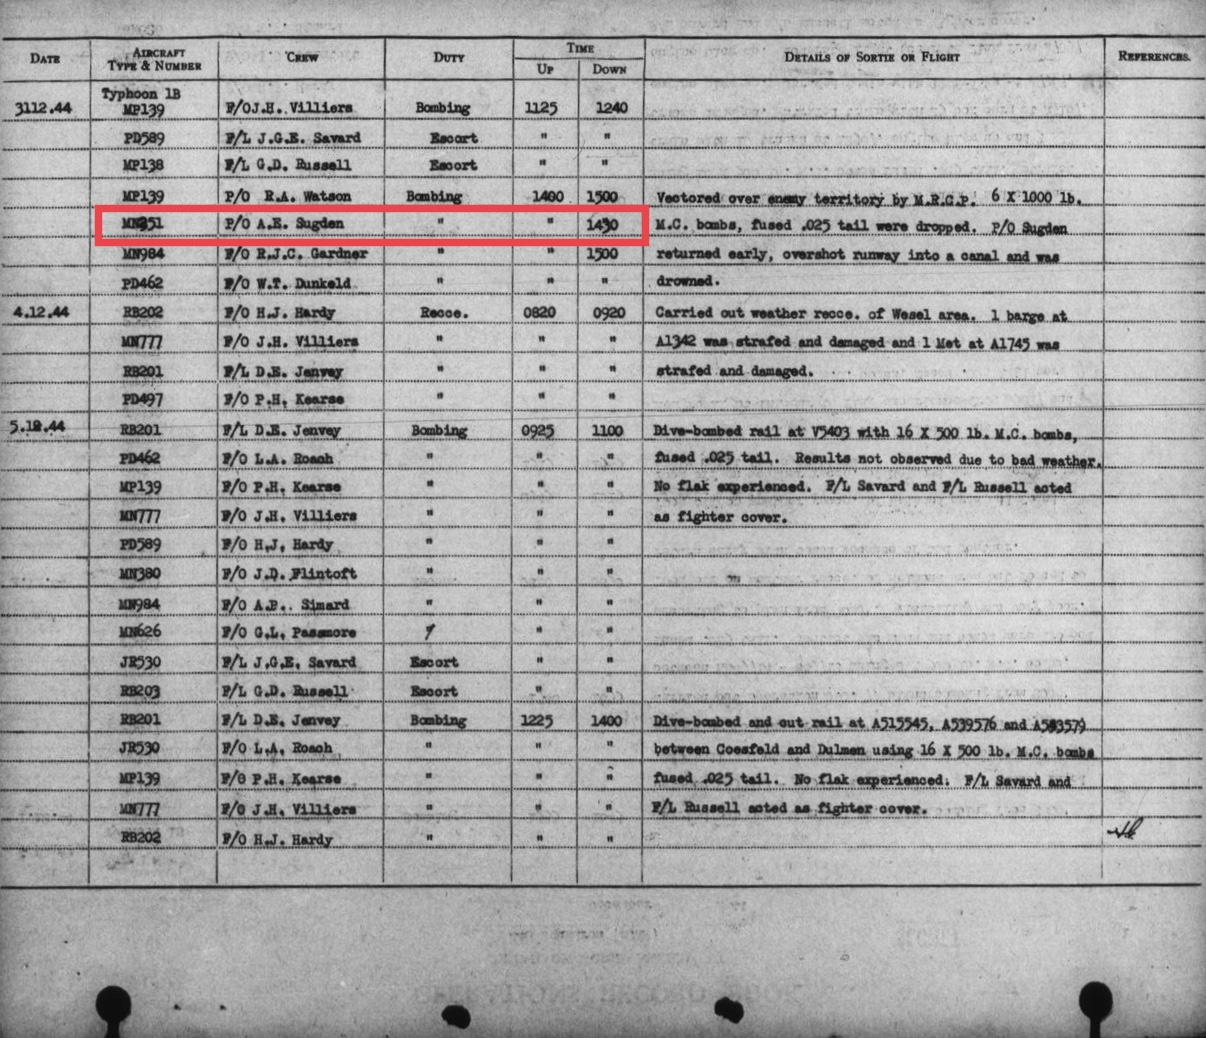 DATE AIRCRAFT TYPE & NUMBER CREW DUTY TIME UP DOWN DETAILS OF SORTIE OR FLIGHT REFERENCES.
Typhoon 1B
3112.44 MP139 F/O J.H. Villiers Bombing 1125 1240
PD589 F/L J.G.E. Savard Escort " "
MP138 F/L G.D. Russell Escort " "
MP139 P/O R.A. Watson Bombing 1400 1500 Vectored over enemy territory by M.R.C.P. 6 X 1000 lb.
P/O A.E. Sugden " " 1430 M.C. bombs, fused .025 tail were dropped. P/O Sugden
MN984 F/O R.J.C. Gardner " " 1500 returned early, overshot runway into a canal and was
PD462 F/O W.T. Dunkeld " " " drowned.
4.12.44 RB202 F/O H.J. Hardy Recce. 0820 0920 Carried out weather recce. of Wesel area. 1 barge at
MN777 F/O J.H. Villiers " " " A1342 was strafed and damaged and 1 Met at A1745 was
RB201 F/L D.E. Jenvey " " " strafed and damaged.
PD497 F/O P.H. Kearse " " "
5.12.44 RB201 F/L D.E. Jenvey Bombing 0925 1100 Dive-bombed rail at V5403 with 16 X 500 lb. M.C. bombs,
PD462 F/O L.A. Roach " " " fused .025 tail. Results not observed due to bad weather.
MP139 F/O P.H. Kearse " " " No flak experienced. F/L Savard and F/L Russell acted
MN777 F/O J.H. Villiers " " " as fighter cover.
PD589 F/O H.J. Hardy " " "
MN380 F/O J.D. Flintoft " " "
MN984 F/O A.P. Simard " " "
MN626 F/O G.L. Passmore " " "
JR530 F/L J.G.E. Savard Escort " "
RB203 F/L G.D. Russell Escort " "
RB201 F/L D.E. Jenvey Bombing 1225 1400 Dive-bombed and cut rail at A515545, A539576 and
JR530 F/O L.A. Roach " " " between Coesfeld and Dulmen using 16 X 500 lb. M.C. bombs
MP139 F/O P.H. Kearse " " " fused .025 tail. No flak experienced. F/L Savard and
MN777 F/O J.H. Villiers " " " F/L Russell acted as fighter cover.
RB202 F/O H.J. Hardy " " "